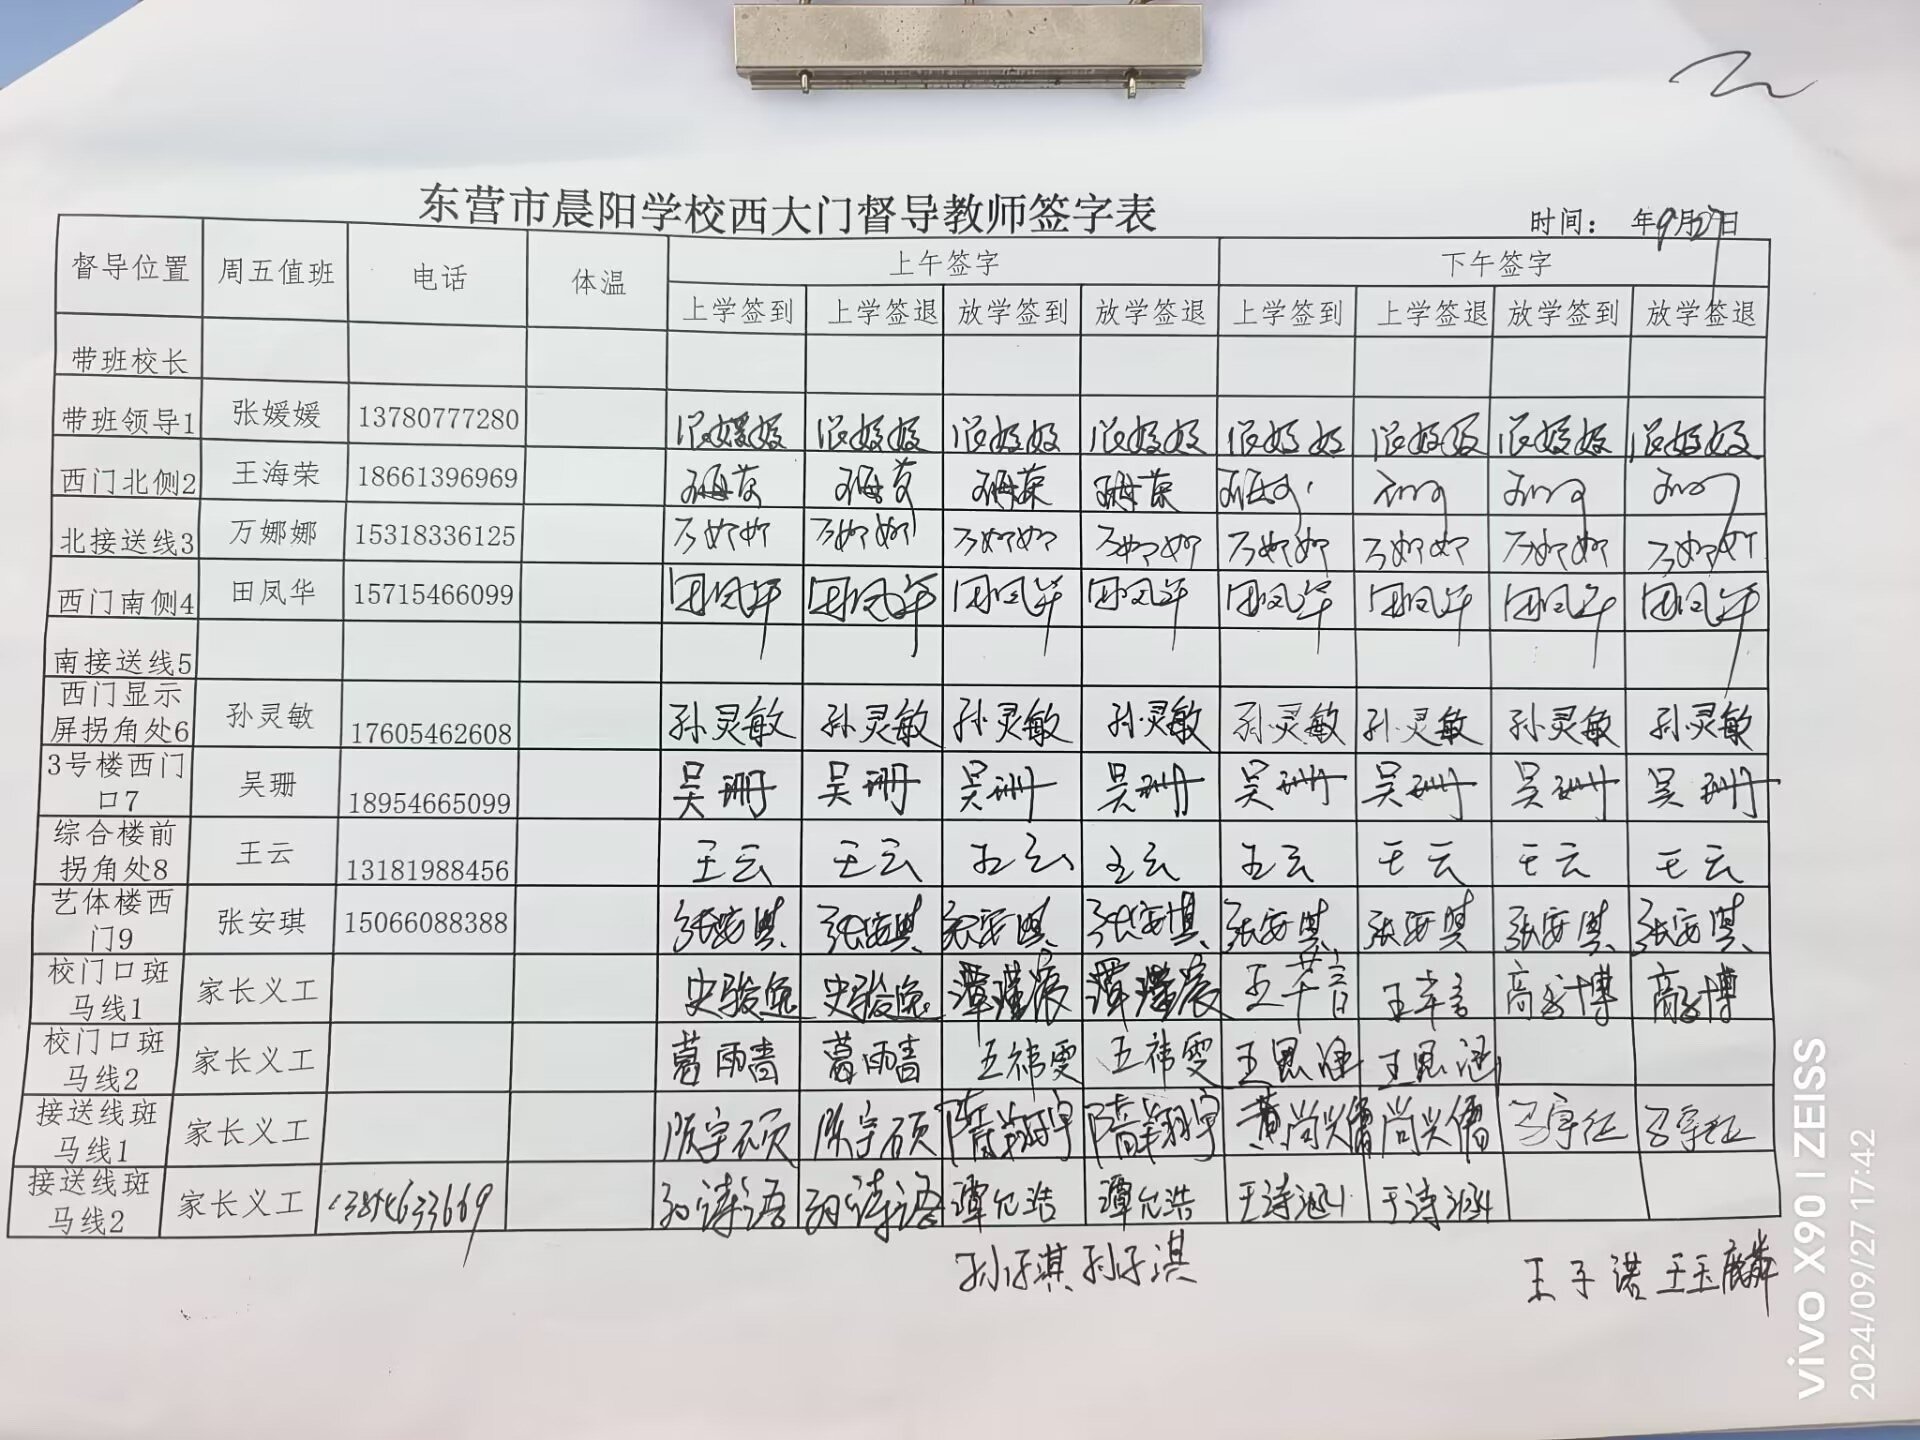 东营市晨阳学校西大门督导教师签字表
时间： 年9月27日
督导位置 周五值班 电话 体温 上午签字 下午签字
上学签到 上学签退 放学签到 放学签退 上学签到 上学签退 放学签到 放学签退
带班校长
带班领导1 张媛媛 13780777280 张媛媛 张媛媛 张媛媛 张媛媛 张媛媛 张媛媛 张媛媛 张媛媛
西门北侧2 王海荣 18661396969 王海荣 王海荣 王海荣 王海荣
北接送线3 万娜娜 15318336125 万娜娜 万娜娜 万娜娜 万娜娜 万娜娜 万娜娜 万娜娜 万娜娜
西门南侧4 田凤华 15715466099 田凤华 田凤华 田凤华 田凤华 田凤华 田凤华 田凤华 田凤华
南接送线5
西门显示
屏拐角处6 孙灵敏 17605462608 孙灵敏 孙灵敏 孙灵敏 孙灵敏 孙灵敏 孙灵敏 孙灵敏 孙灵敏
3号楼西门
口7 吴珊 18954665099 吴珊 吴珊 吴珊 吴珊 吴珊 吴珊 吴珊 吴珊
综合楼前
拐角处8 王云 13181988456 王云 王云 王云 王云 王云 王云 王云 王云
艺体楼西
门9 张安琪 15066088388 张安琪 张安琪 张安琪 张安琪 张安琪 张安琪 张安琪 张安琪
校门口斑
马线1 家长义工 史骏逸 史骏逸 谭瑾宸 谭瑾宸
校门口斑
马线2 家长义工 葛雨晴 葛雨晴 王祎雯 王祎雯 王思涵 王思涵
接送线斑
马线1 家长义工 陈宇硕 陈宇硕 隋翔宇 隋翔宇 黄尚兴儒 尚兴儒
接送线斑
马线2 家长义工 孙诗语 孙诗语 谭允浩 谭允浩 王诗涵 王诗涵
孙子淇 孙子淇 王子诺 王玉麟
vivo X90 | ZEISS
2024/09/27 17:42